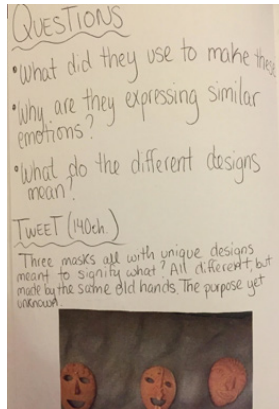 QUESTIONS
•What did they use to make these
•Why are they expressing similar
emotions?
•What do the different designs
mean?
TWEET (140ch.)
Three masks all with unique designs
meant to signify what? All different, but
made by the same old hands. The purpose yet
unknown.